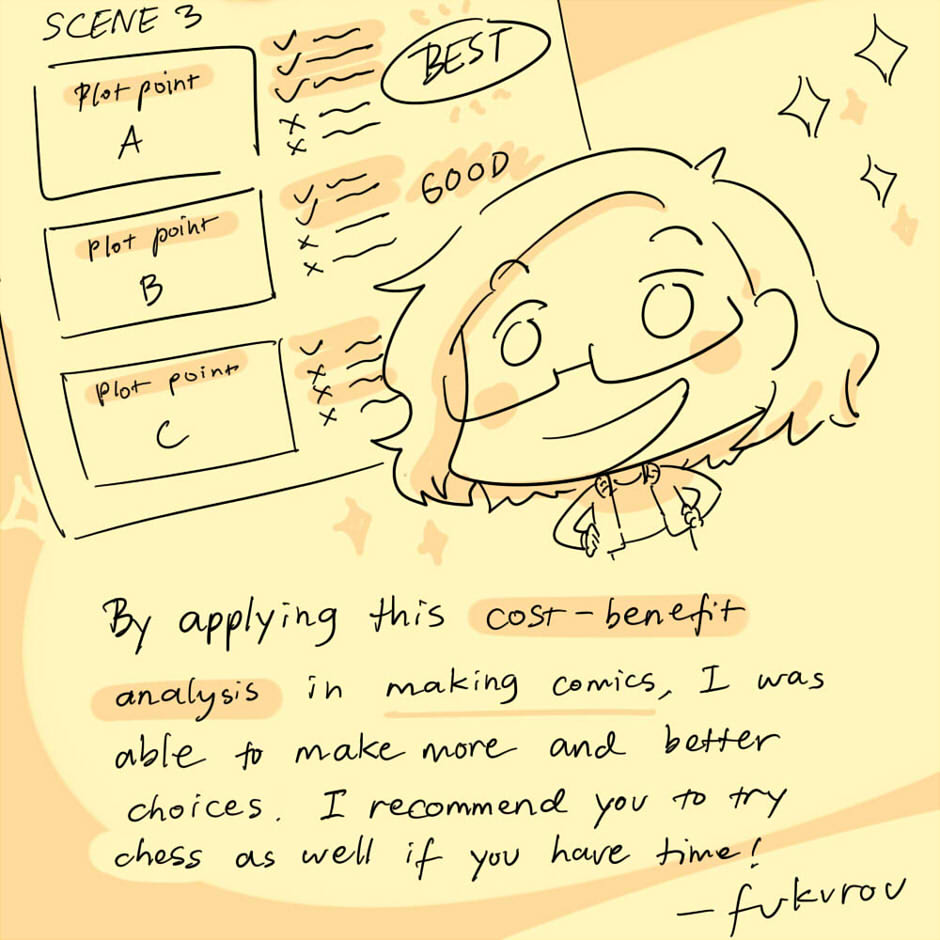 SCENE 3
Plot point
A
BEST
Plot point
B
GOOD
Plot point
C
By applying this cost-benefit
analysis in making comics, I was
able to make more and better
choices. I recommend you to try
chess as well if you have time!
- fukurou